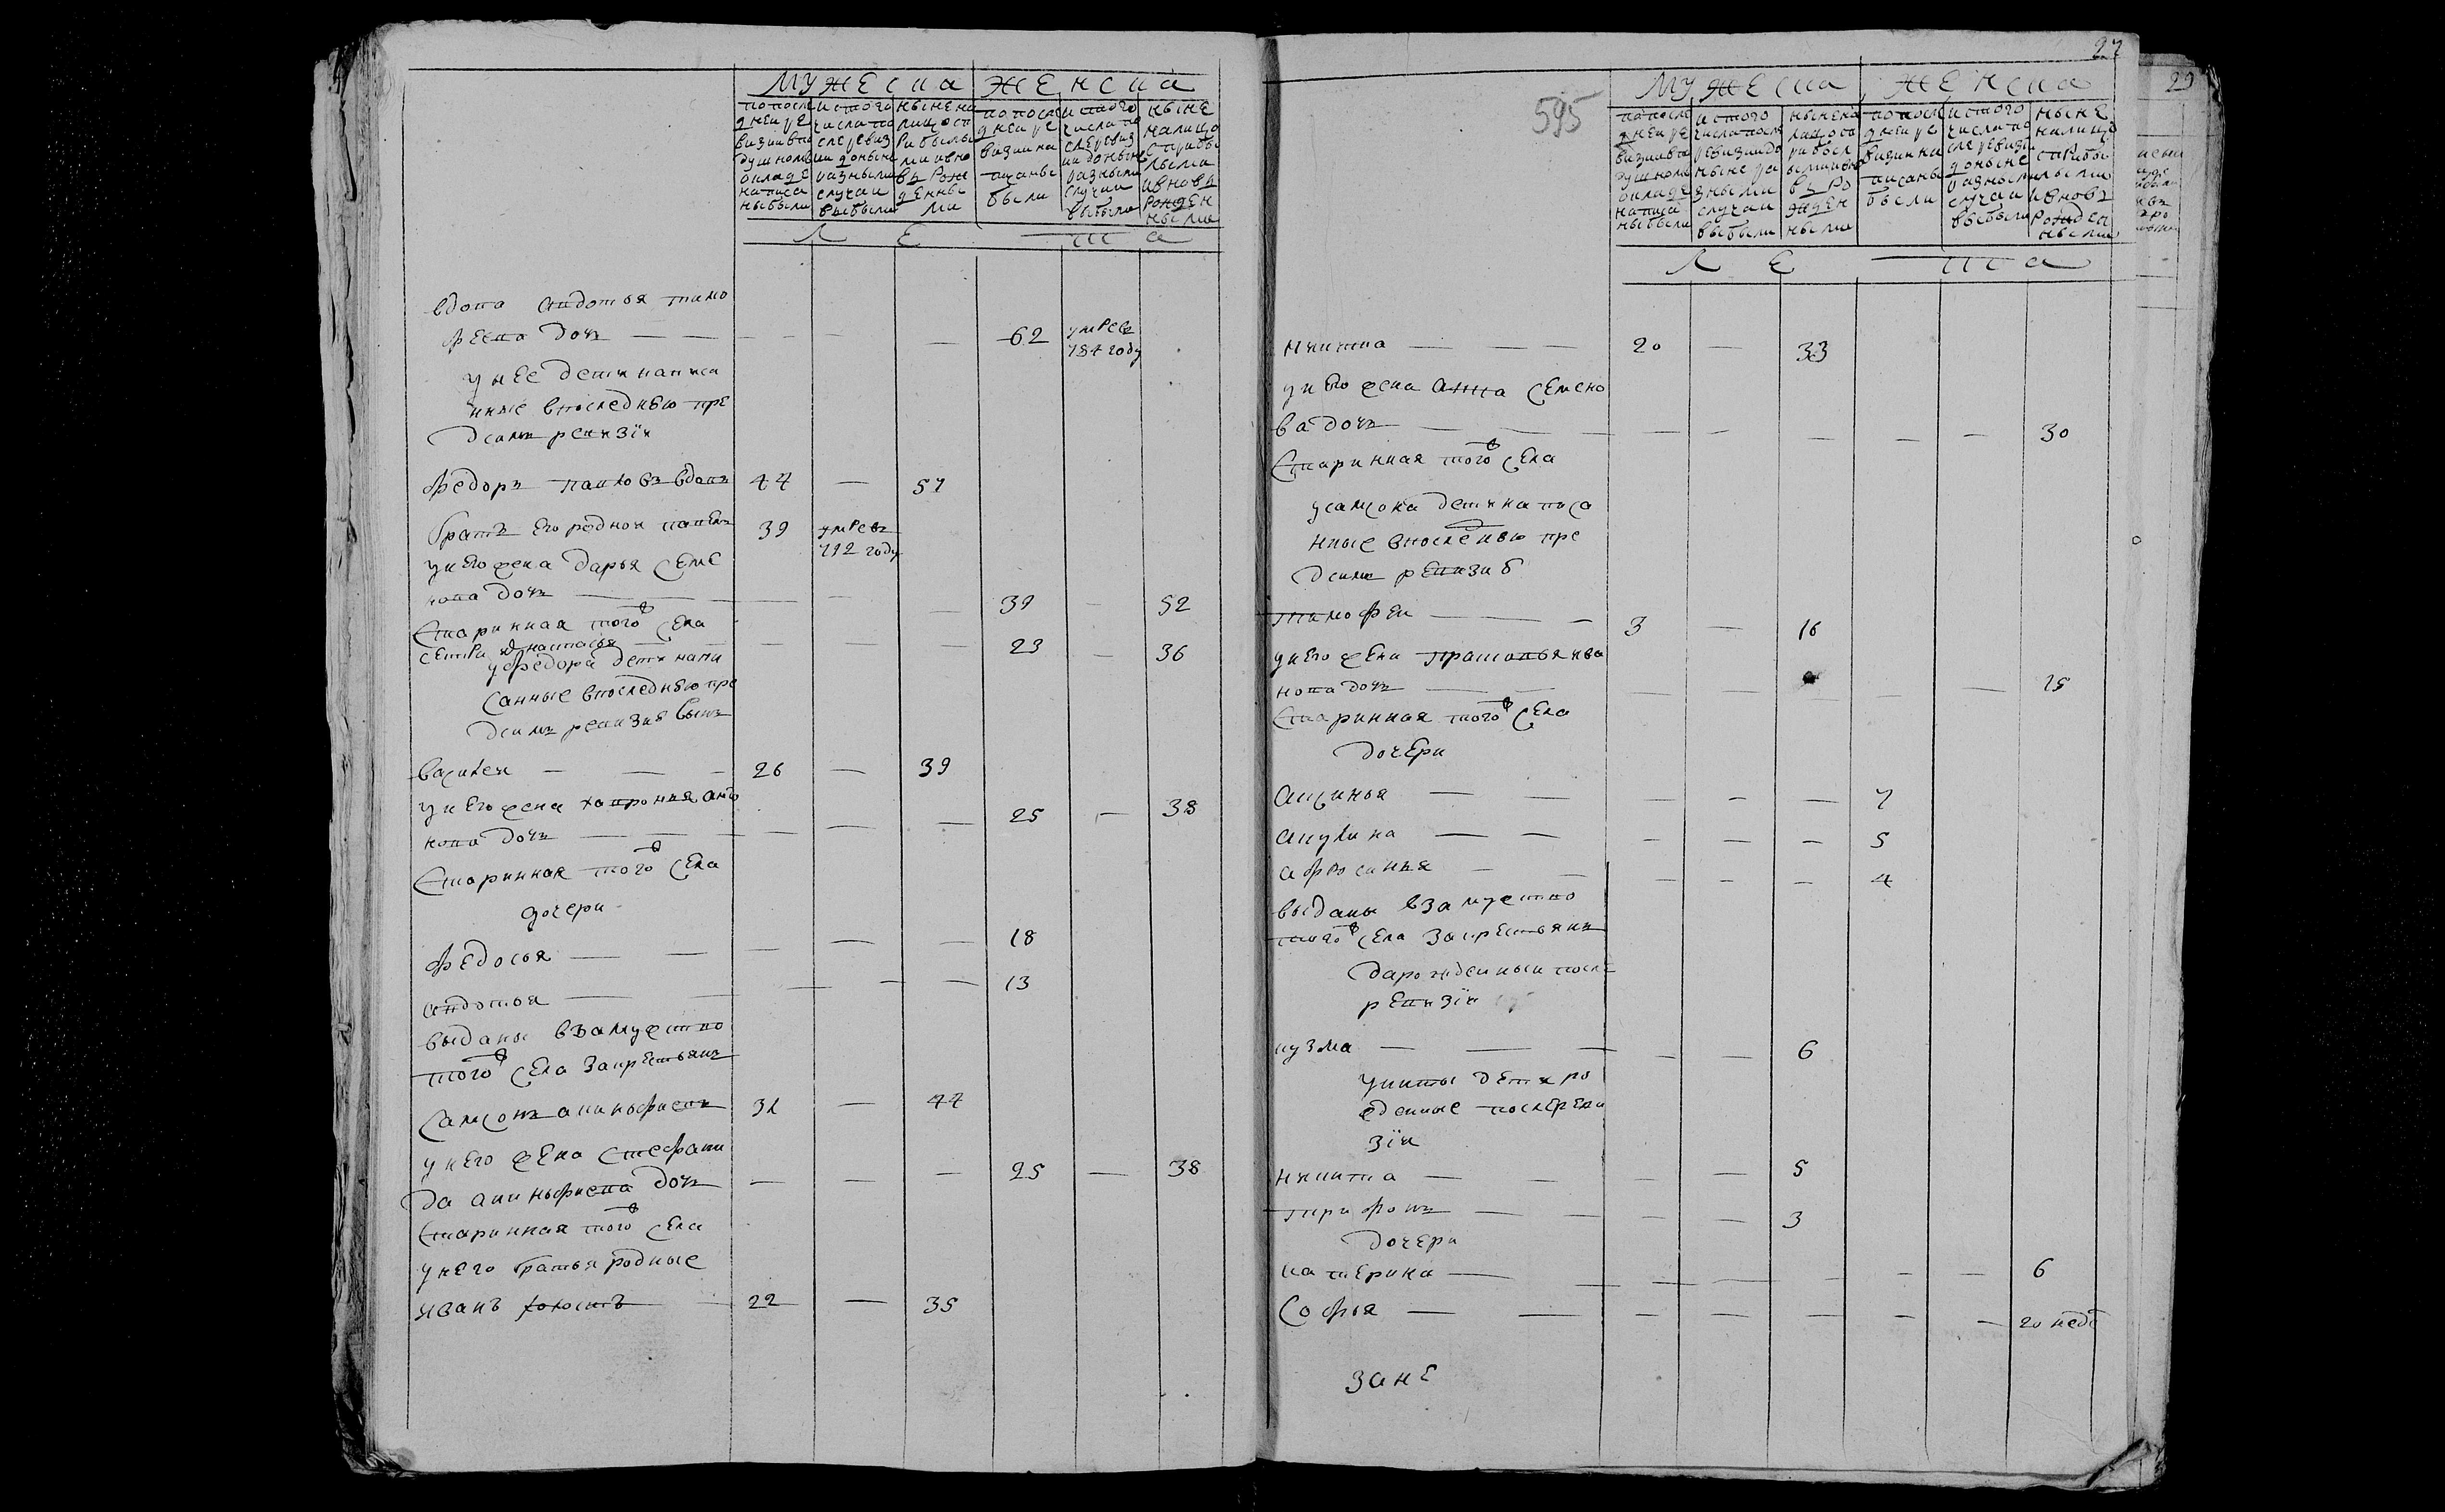 мужеска женска
по после дней ре визии в по душном окладе написа ны были
и того числа по сле ревиз ии доныне разными случаи выбыли
ныне на лицо с п рибылы ми и вно вь рож денны ми
по после дней ре визии на писаны были
и того числа по сле ревиз ии доныне разными случаи выбыло
ныне налицо с прибы лыми и вновь рожден ными
л е т а
вдова авдотья тимо
феева дочь — — 62 умре въ 784 году
у нее дети написа
нные в последнею пре
дсимъ ревизiи
федоръ павловъ вдовъ 44 — 57
братъ его родной павелъ 39 умре въ 792 году
у него жена дарья семе
нова дочь — 39 — 52
старинная того ж села
сестра настасья — 23 — 36
у федора дети напи
санные в последнею пре
дсимъ ревизию сынъ
василей — 26 — 39
у него жена хавронья анто
нова дочь — 25 — 38
старинная того ж села
дочери
федосья — 18
авдотья — 13
выданы в замужество
того ж села за крестьянъ
самсонъ анкиндиновъ 31 — 44
у него жена степани
да анкиндинова дочь — 25 — 38
старинная того ж села
у него братья родные
иванъ холостъ 22 — 35
27
29
595
мужеска женска
по после дней ре визии в по душном окладе написа ны были
и того числа после ревизии до ныне ра зными случаи выбыли
ныне на лицо с п рибыл ыми и вно вь ро жден ными
по после дней ре визии на писаны были
и того числа по сле ревизи доныне разными случаи выбыли
ныне налицо с прибы лыми и вновь рожден ными
л е т а
никита — 20 — 33
у него жена анна семено
ва дочь — 30
старинная того ж села
у самсона дети написа
нные в последнею пре
дсимъ ревизию
тимофей — 3 — 16
у него жена праскавья ива
нова дочь — 15
старинная того ж села
дочери
аксинья — 7
акулина — 5
афросинья — 4
выданы в замужество
того ж села за крестьянъ
да рожденный после
ревизiи
кузма — 6
у никиты дети ро
жденные после реви
зiи
никита — 5
трифонъ — 3
дочери
катерина — 6
софья — 20 неде
за не